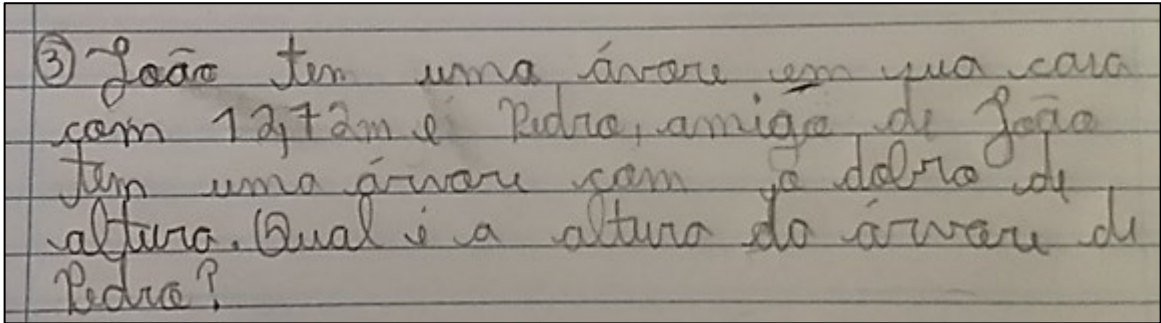 ③ João tem uma árvore em sua casa
com 12,72m e Pedro, amigo de João
tem uma árvore com o dobro de
altura. Qual é a altura da árvore de
Pedro?